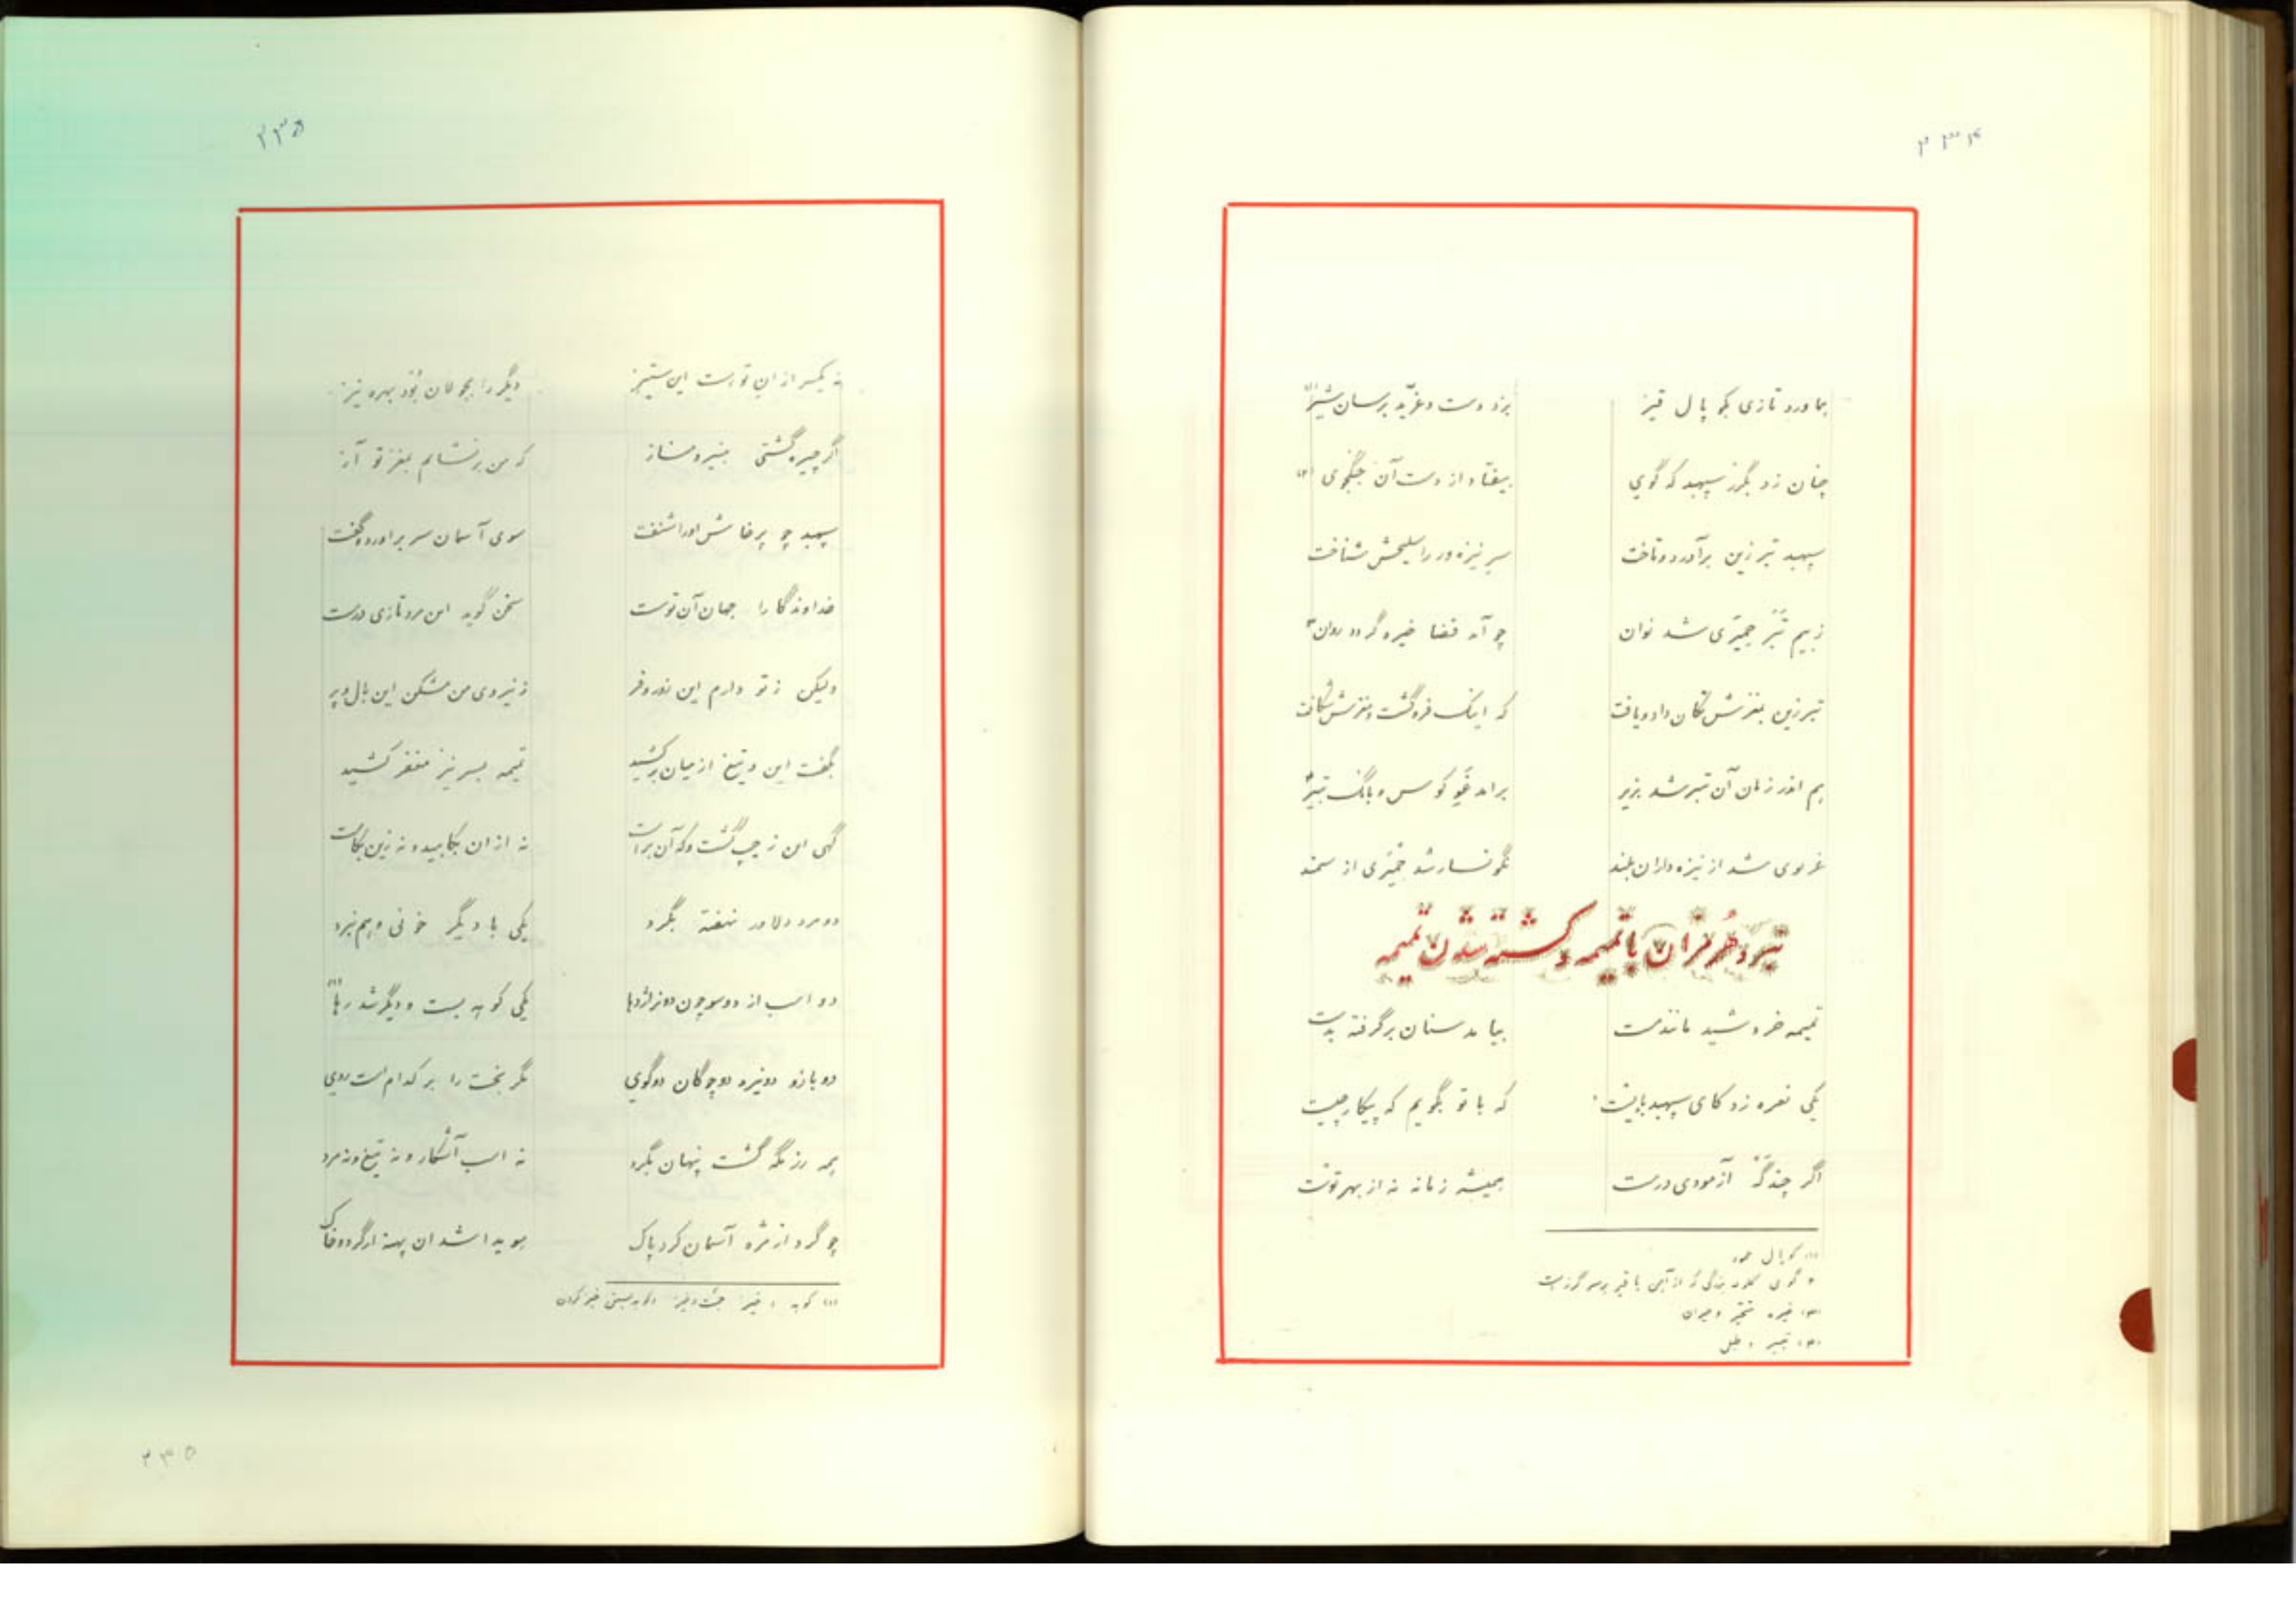 ۲۳۴
بماورد تازی بکوپال تیز بزد دست و غرید برسان شیر (۱)
چنان زد بگرز سپهبد که گوی بیفتاد از دست آن جنگجوی (۲)
سپهبد تبرزین برآورد و تاخت سر نیزه‌ور را سلیحش شناخت
ز بیم تبر حمیری شد نوان چو آمد قضا خیره گردد روان ۳
تبرزین بمغزش تکان داد و یافت که اینک فرو گشت و مغزش شکافت
هم اندر زمان آن تبر شد بزیر برامد غو کوس و بانگ تبیر ۴
غریوی شد از نیزه داران بلند نگونسار شد حمیری از سمند
نبرد هرمزان با تمیمه و کشته شدن تمیمه
تمیمه خروشید مانند مست بیامد سنان برگرفته بدست
یکی نعره زد کای سپهبد بایست که با تو بگویم که پیکار چیست
اگر چند آزمودی درست همیشه زمانه نه از بهر توست
(۱) کوپال عمود
(۳) خیره متحیر و حیران
(۴) تبیر طبل
۲۳۵
نه یکسر از آن تو است این ستیز دیگر را بجولان بود بهره نیز
اگر چیره گشتی بنیرو مناز که من بر نشانم بمغز تو آز
سپهبد چو پرخاش او را شنفت سوی آسمان سر براورد و گفت
خداوندگارا جهان آن توست سخن گوید این مرد تازی درست
ولیکن ز تو دارم این زور و فر ز نیروی من مشکن این بال و پر
بگفت این و تیغ از میان برکشید تمیمه بسر نیز مغفر کشید
گهی این ز چپ گشت و گه آن براست نه از آن بکابید و نه زین بکاست
دو مرد دلاور نهفته بگرد یکی با دیگر خونی و هم نبرد
دو اسب از دو سو چون دو نر اژدها یکی کوهه بست و دیگر شد رها (۱)
دو بازو دو نیزه دو چوگان دو گوی نگر بخت را بر کدام است روی
همه رزمگه گشت پنهان بگرد نه اسب آشکار و نه تیغ و نه مرد
چو گرد از مژه آسمان کرد پاک هویدا شد آن پهنه از گرد و خاک
(۱) کوهه خیز
۲۳۵